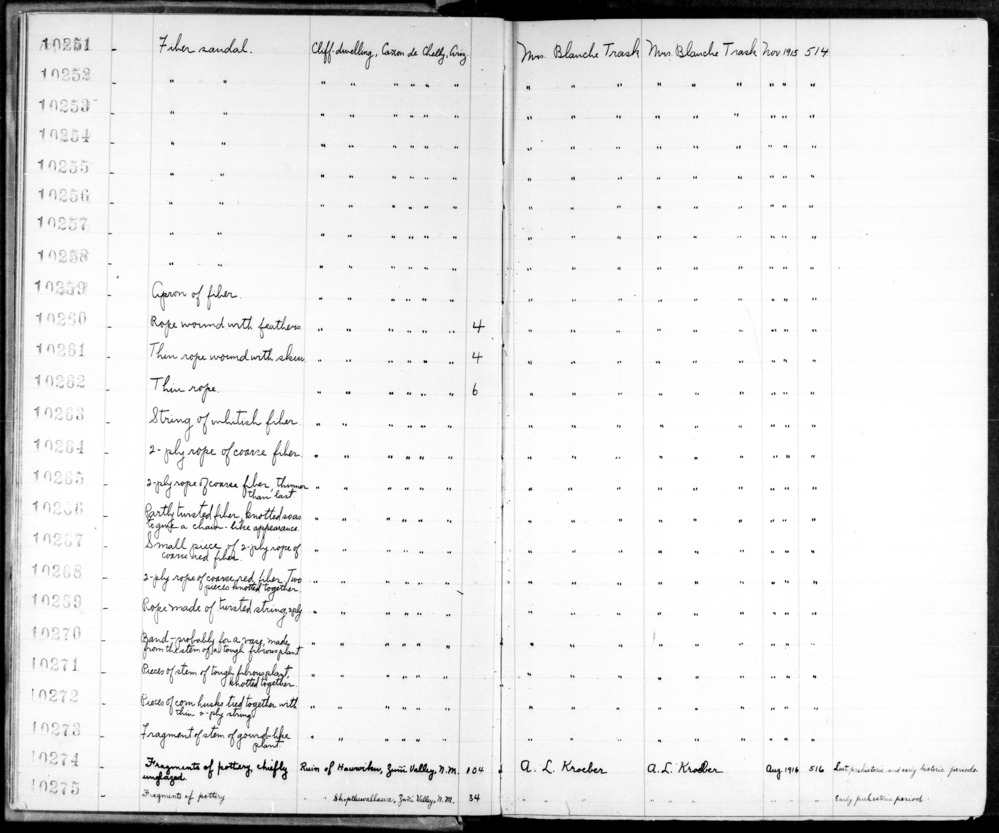 10251 - Fiber sandal. Cliff-dwelling, Cañon de Chelly, Ariz Mrs. Blanche Trask Mrs. Blanche Trask Nov 1915 514
10252 - " " " " " " " " " " " " " " " " "
10253 - " " " " " " " " " " " " " " " " "
10254 - " " " " " " " " " " " " " " " " "
10255 - " " " " " " " " " " " " " " " " "
10256 - " " " " " " " " " " " " " " " " "
10257 - " " " " " " " " " " " " " " " " "
10258 - " " " " " " " " " " " " " " " " "
10259 - Apron of fiber. " " " " " " " " " " " " " " "
10260 - Rope wound with feathers " " " " " " 4 " " " " " " " " "
10261 - Thin rope wound with skin " " " " " " 4 " " " " " " " " "
10262 - Thin rope. " " " " " " 6 " " " " " " " " "
10263 - String of whitish fiber. " " " " " " " " " " " " " " "
10264 - 2-ply rope of coarse fiber. " " " " " " " " " " " " " " "
10265 - 2-ply rope of coarse fiber, thinner " " " " " " " " " " " " " " "
than last
10266 - Partly twisted fiber, knotted so as " " " " " " " " " " " " " " "
to give a chain-like appearance.
10267 - Small piece of 2-ply rope of " " " " " " " " " " " " " " "
coarse red fiber.
10268 - 2-ply rope of coarse, red fiber. Two " " " " " " " " " " " " " " "
pieces knotted together.
10269 - Rope made of twisted string, 2 ply " " " " " " " " " " " " " " "
10270 - Band - probably for a vase, made " " " " " " " " " " " " " " "
from the stem of a tough fibrous plant
10271 - Pieces of stem of tough fibrous plant, " " " " " " " " " " " " " " "
knotted together.
10272 - Pieces of corn husks tied together with " " " " " " " " " " " " " " "
thin 2-ply string
10273 - Fragment of stem of gourd-like " " " " " " " " " " " " " " "
plant.
10274 - Fragments of pottery, chiefly Ruin of Hawwikuu, Zuñi Valley, N.M. 104 A. L. Kroeber A. L. Kroeber Aug 1916 516 Last prehistoric and early historic periods.
unglazed.
10275 - Fragments of pottery " " Valley, N.M. 34 " " " " " " " " " Early prehistoric period.